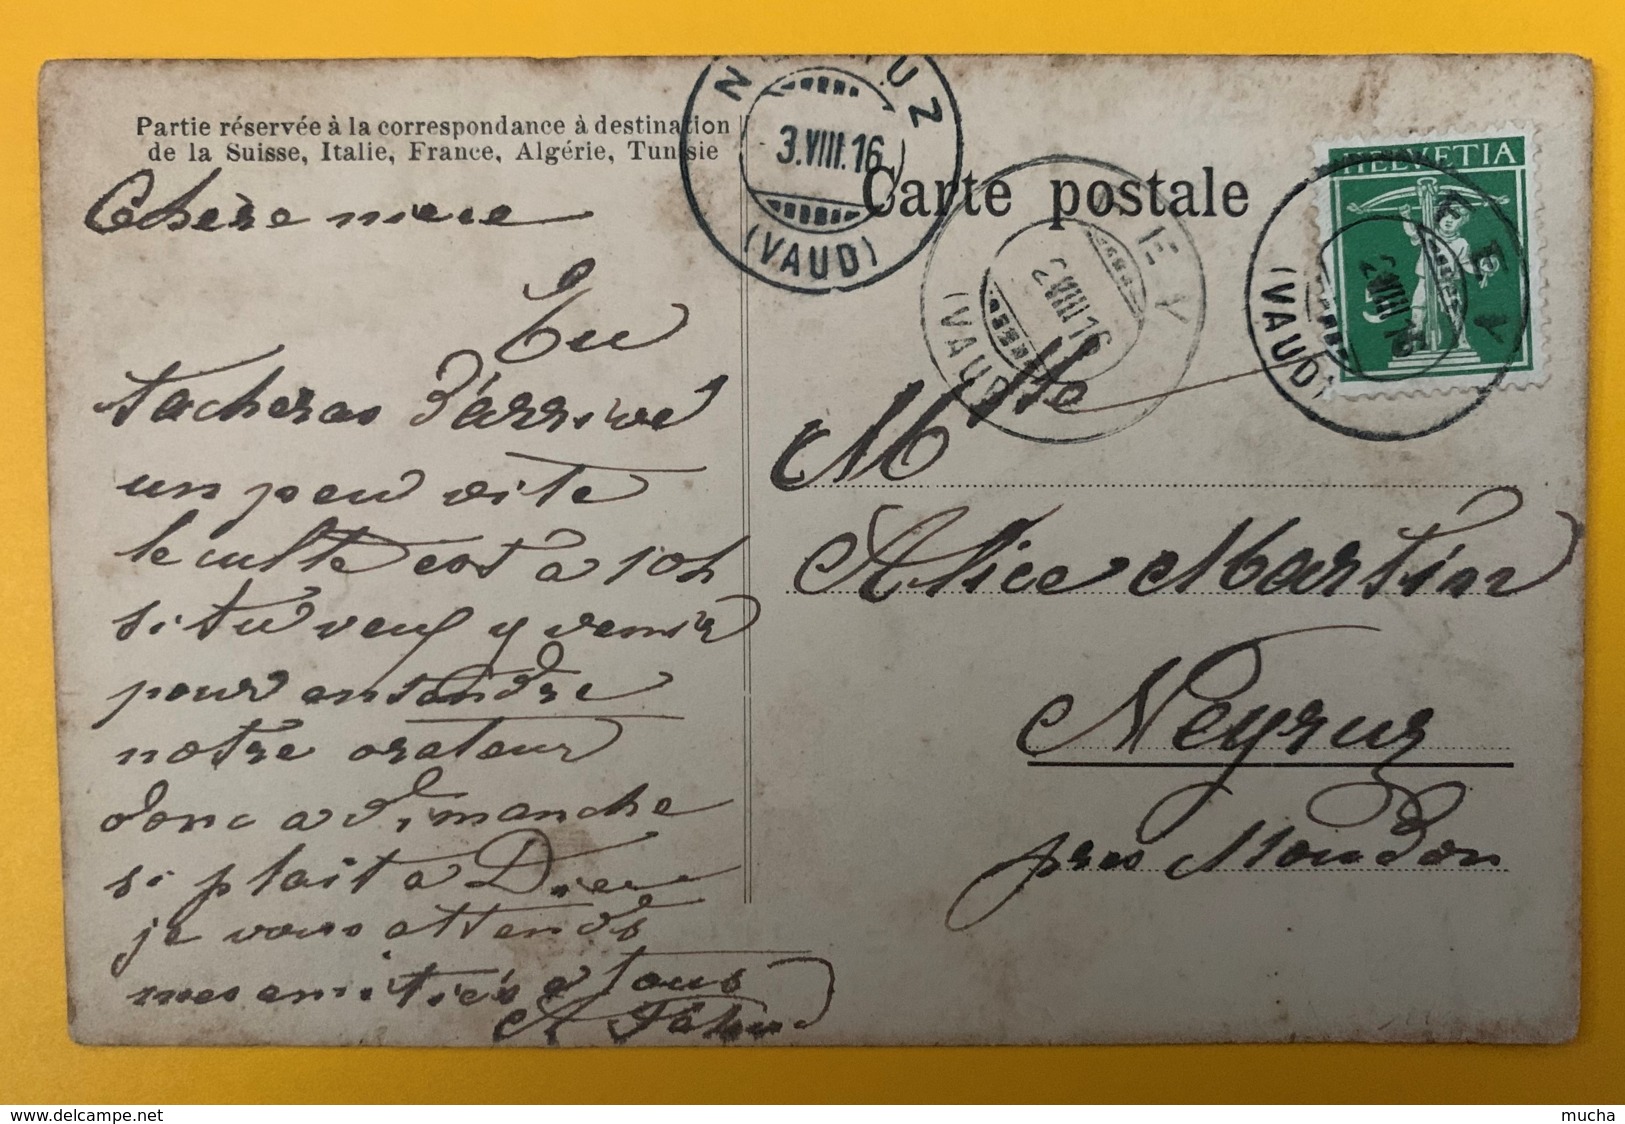 Partie réservée à la correspondance à destination
de la Suisse, Italie, France, Algérie, Tunisie
Carte postale
HELVETIA
5
3.VIII.16
(VAUD)
2 VIII 16
(VAUD)
2 VIII 16
(VAUD)
Chère mère
Tu
tacheras d'arrivé
un peu vite
le culte est à 10h
si tu veux y venir
pour entendre
notre orateur
donc a dimanche
si plait a Dieu
je vous attends
mes amitiés a tous
A
Mlle
Alice Martin
Neyruz
près Moudon
delcampe.net
mucha